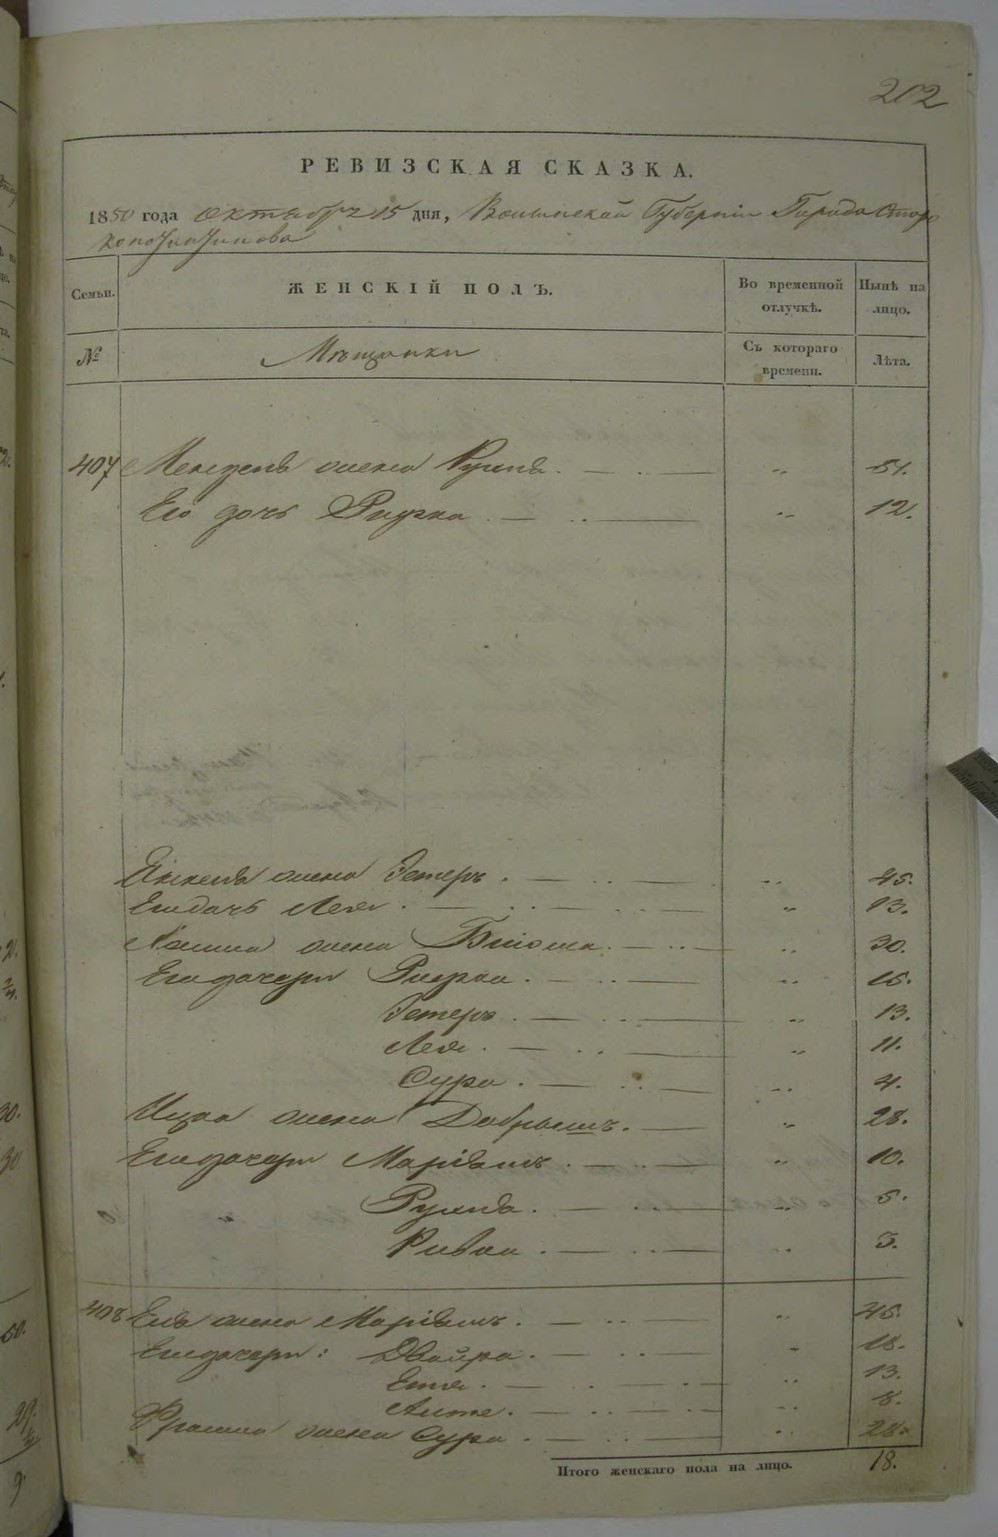 202
РЕВИЗСКАЯ СКАЗКА.
1850 года октября 15 дня, Волынской Губернии Города Старо
константинова
Семьи. ЖЕНСКІЙ ПОЛЪ. Во временной отлучкѣ. Нынѣ на лицо.
№ Мѣщанки Съ котораго времени. Лѣта.
407 жена Рухля 51.
Его дочь Ривка 12.
Янкеля жена Гетеръ 45.
Его дочь Лея 13.
жена 30.
Его дочери Ривка 16.
Гетеръ 13.
Лея 11.
Сура 4.
Ицка жена Добрышъ 28.
Его дочери Маріямъ 10.
Рухля 5.
Ривка 3.
408 жена Маріямъ 45.
Его дочери: Двойра 18.
Етя 13.
8.
жена Сура 28.
Итого женскаго пола на лицо. 18.